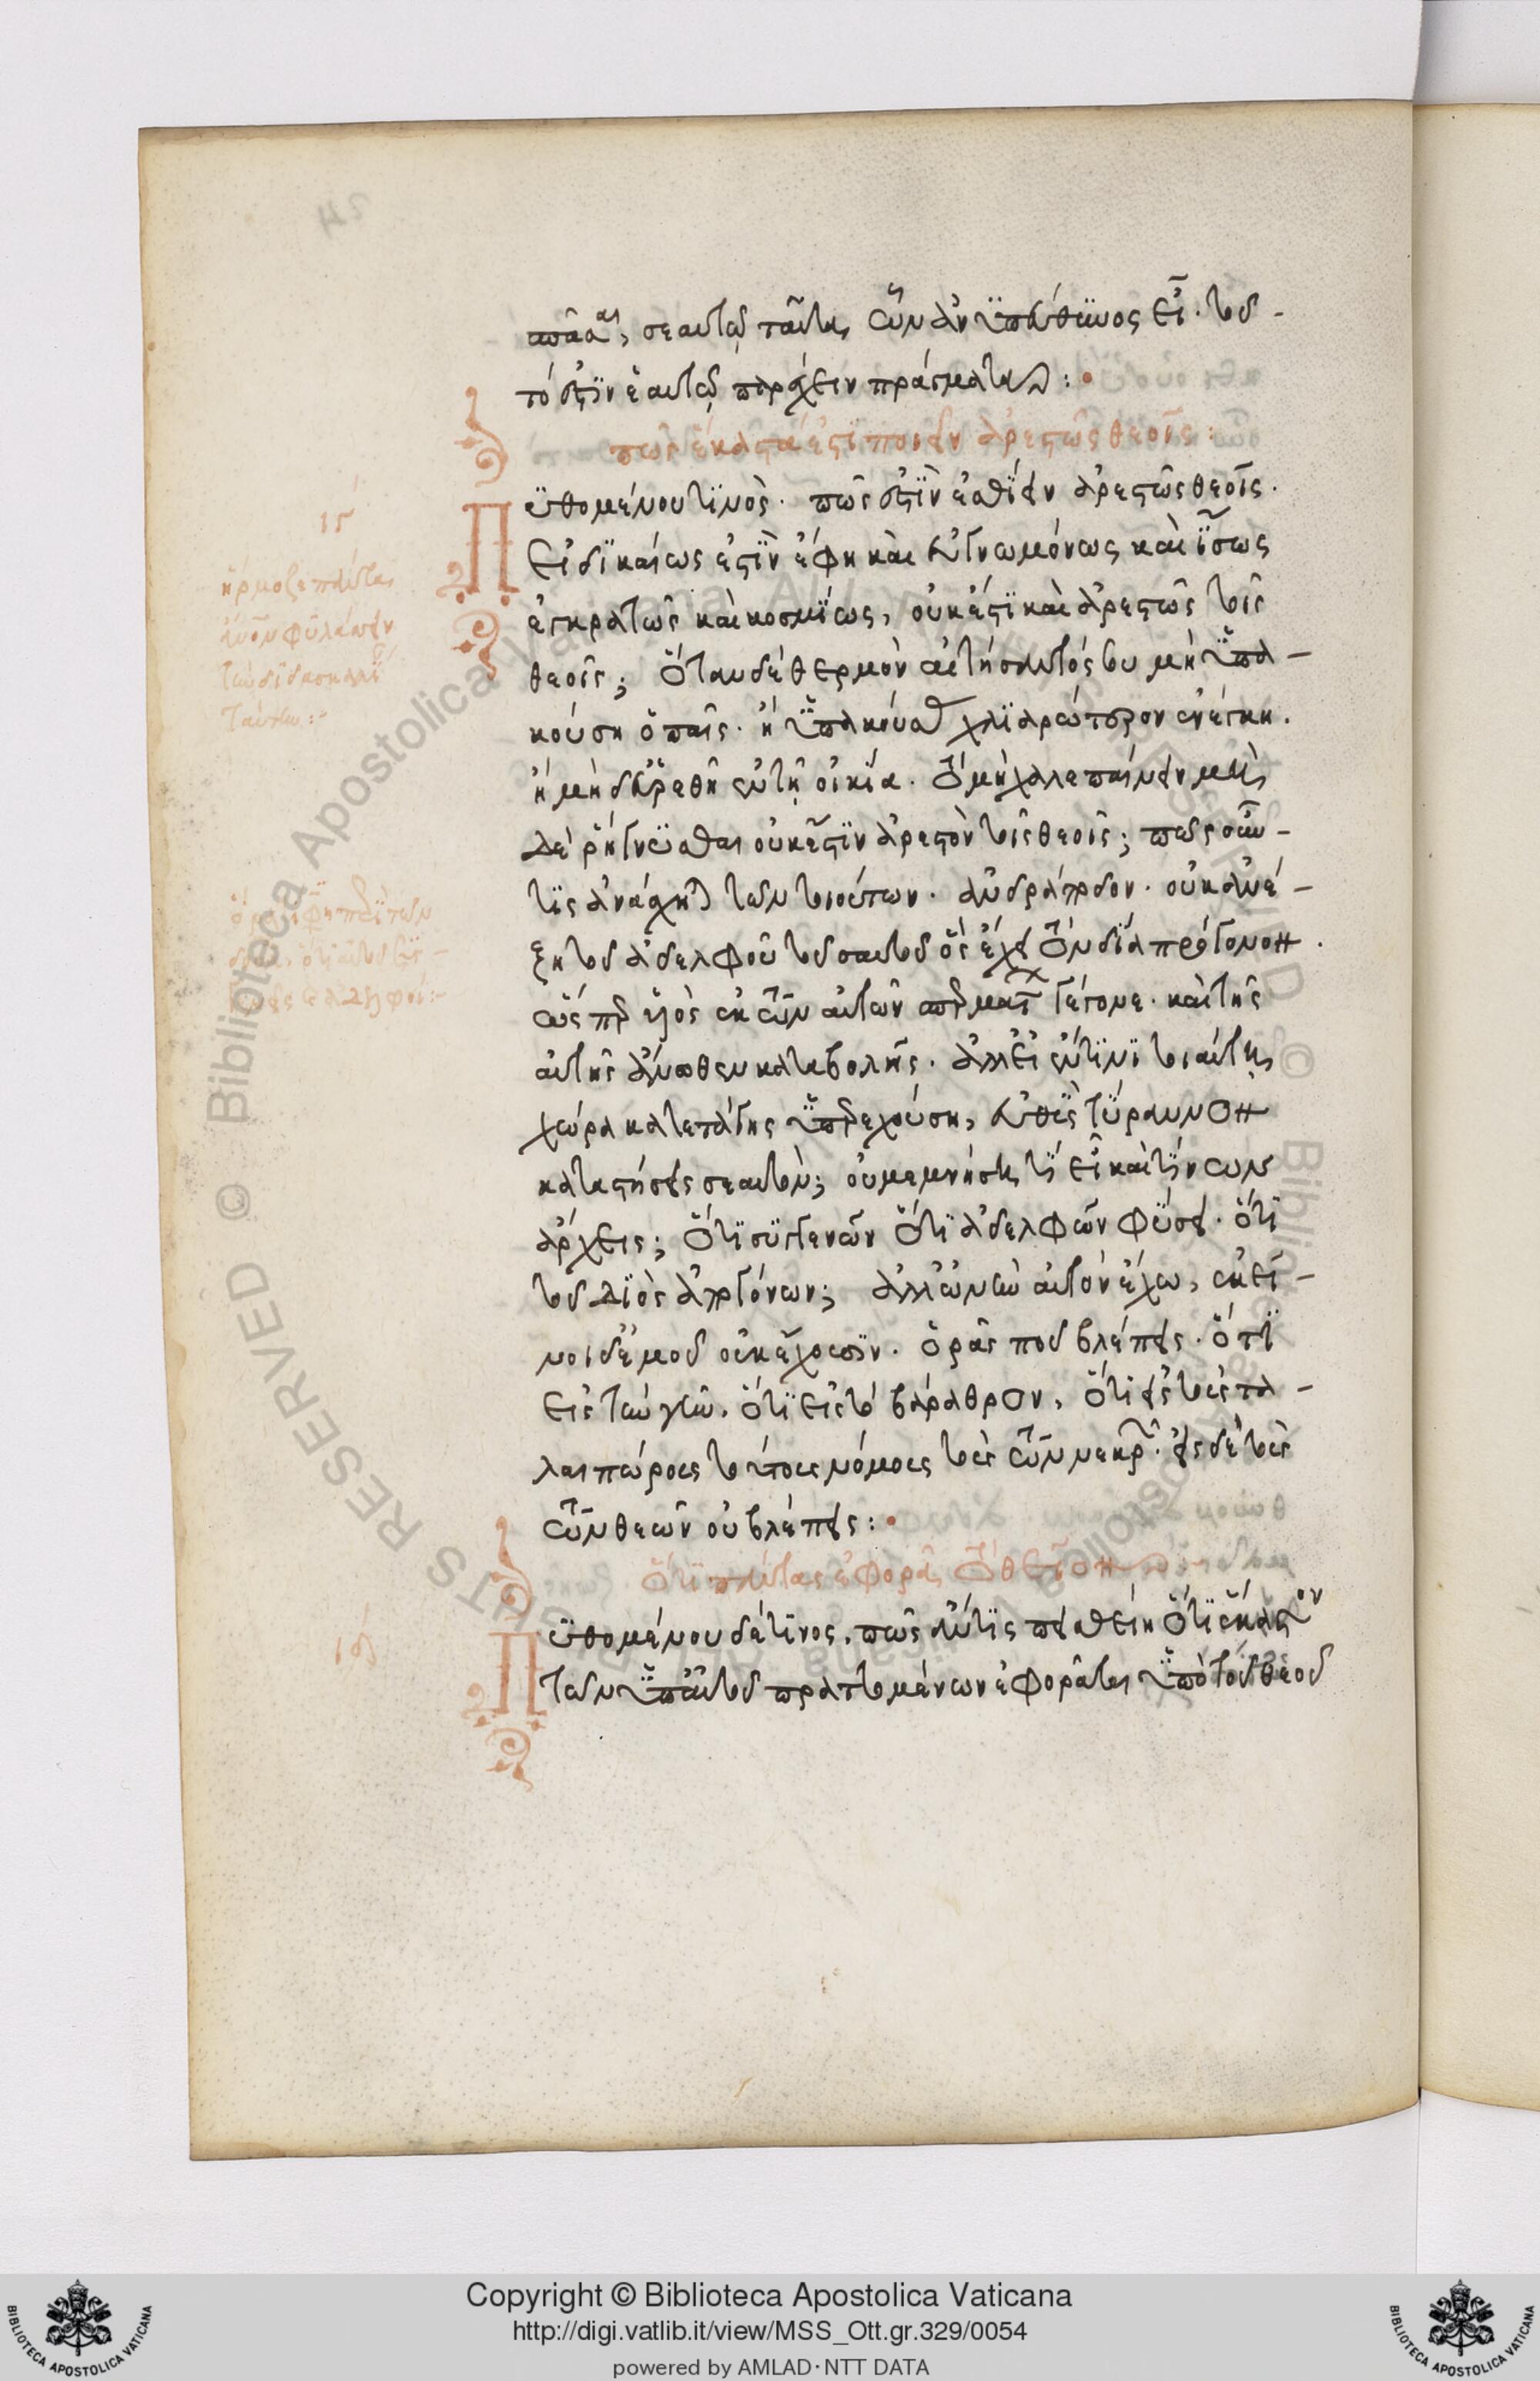 πᾶσαι, σεαυτῶ ταῦτα, ὧν ἀνυπεύθυνος εἶ. τοῦ-
τό ἐστϊν ἑαυτῶ παρέχειν πράγματα:
πῶς ἕκαστά ἐστϊ ποιεῖν ἀρεστῶς θεοῖς:
Πϋθομένου τϊνὸς. πῶς ἐστϊν ἐσθΐειν ἀρεστῶς θεοῖς.
Εἰ δϊκαίως ἐστϊν ἔφη καὶ εὐγνωμόνως καὶ ΐσως
ἐγκρατῶς καὶ κοσμΐως, οὐκ ἔστϊ καὶ ἀρεστῶς τοῖς
θεοῖς; Ὅταν δὲ θερμὸν αἰτήσαντός σου μὴ ὑπα-
κούση ὁ παῖς. ἢ ὑπακούσας χλϊαρώτερον ἐνέγκη.
ἢ μηδ' εὑρεθῆ ἐν τῆ οἰκΐα. τὸ μὴ χαλεπαίνειν μηδὲ
ῥήγνϋσθαι οὐκ ἔστϊν ἀρεστὸν τοῖς θεοῖς; πῶς οὖν
τΐς ἀνάσχηται τῶν τοιούτων. ἀνδράποδον. οὐκ ἀνέ-
ξη τοῦ ἀδελφοῦ τοῦ σαυτοῦ ὃς ἔχει τὸν δΐα πρόγονον.
ὥσπερ υἱὸς ἐκ τῶν αὐτῶν σπερμάτων γέγονε. καὶ τῆς
αὐτῆς ἄνωθεν καταβολῆς. ἀλλ' εἰ ἔν τϊνϊ τοιαύτη
χώρα κατετάγης ὑπερεχούση, εὐθϋς τϋραννον
καταστήσεις σεαυτὸν; οὐ μεμνήση τΐ εἶ καὶ τΐνων
ἄρχεις; Ὅτϊ σϋγγενῶν Ὅτϊ ἀδελφῶν φϋσει. ὅτϊ
τοῦ Δϊὸς ἀπογόνων; ἀλλ' ὠνὴν αὐτῶν ἔχω, ἐκεῖ-
νοι δ' ἐμοῦ οὐκ ἔχουσϊν. ὁρᾶς ποῦ βλέπεις. ὅτϊ
εἰς τὴν γῆν. ὅτϊ εἰς τὸ βάραθρον, ὅτϊ εἰς τοὺς τα-
λαιπώρους τούτους νόμους τοὺς τῶν νεκρῶν. εἰς δὲ τοὺς
τῶν θεῶν οὐ βλέπεις:
Ὅτϊ πάντας ἐφορᾶ τὸ θεῖον
Πϋθομένου δέ τϊνος, πῶς ἄν τϊς πεισθείη ὅτϊ ἕκαστον
τῶν ὑπ' αὐτοῦ πραττομένων ἐφορᾶται ὑπὸ τοῦ θεοῦ
Copyright © Biblioteca Apostolica Vaticana
http://digi.vatlib.it/view/MSS_Ott.gr.329/0054
powered by AMLAD·NTT DATA